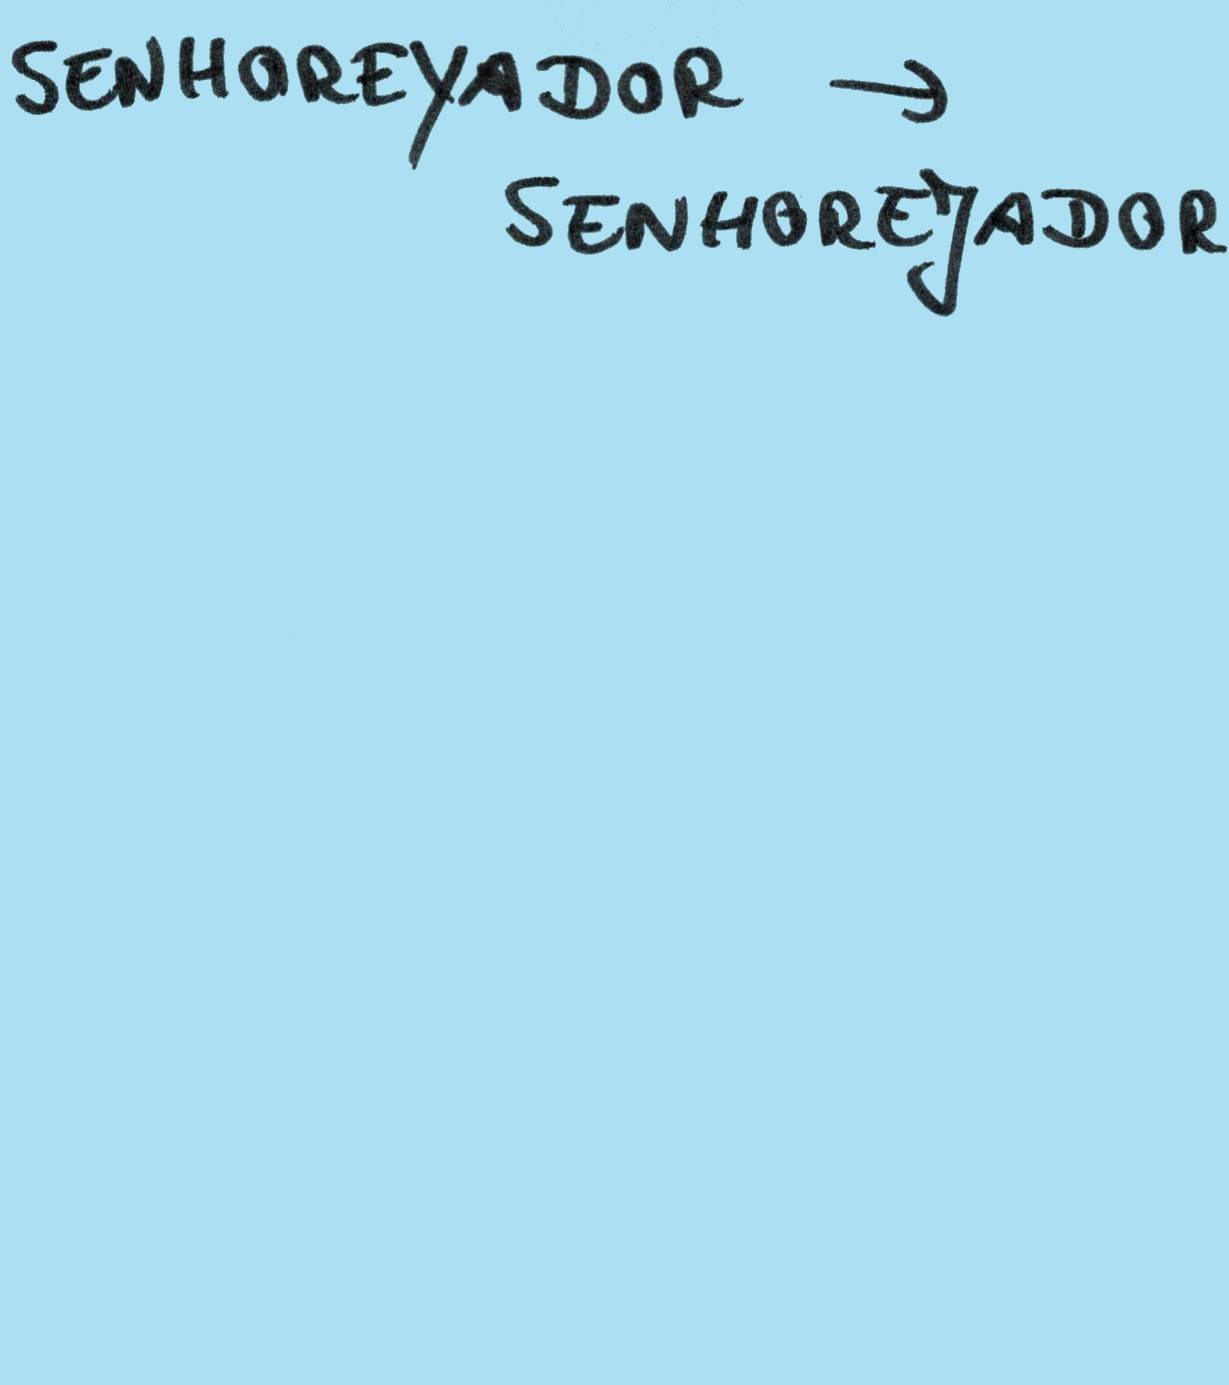 SENHOREYADOR →
SENHOREJADOR